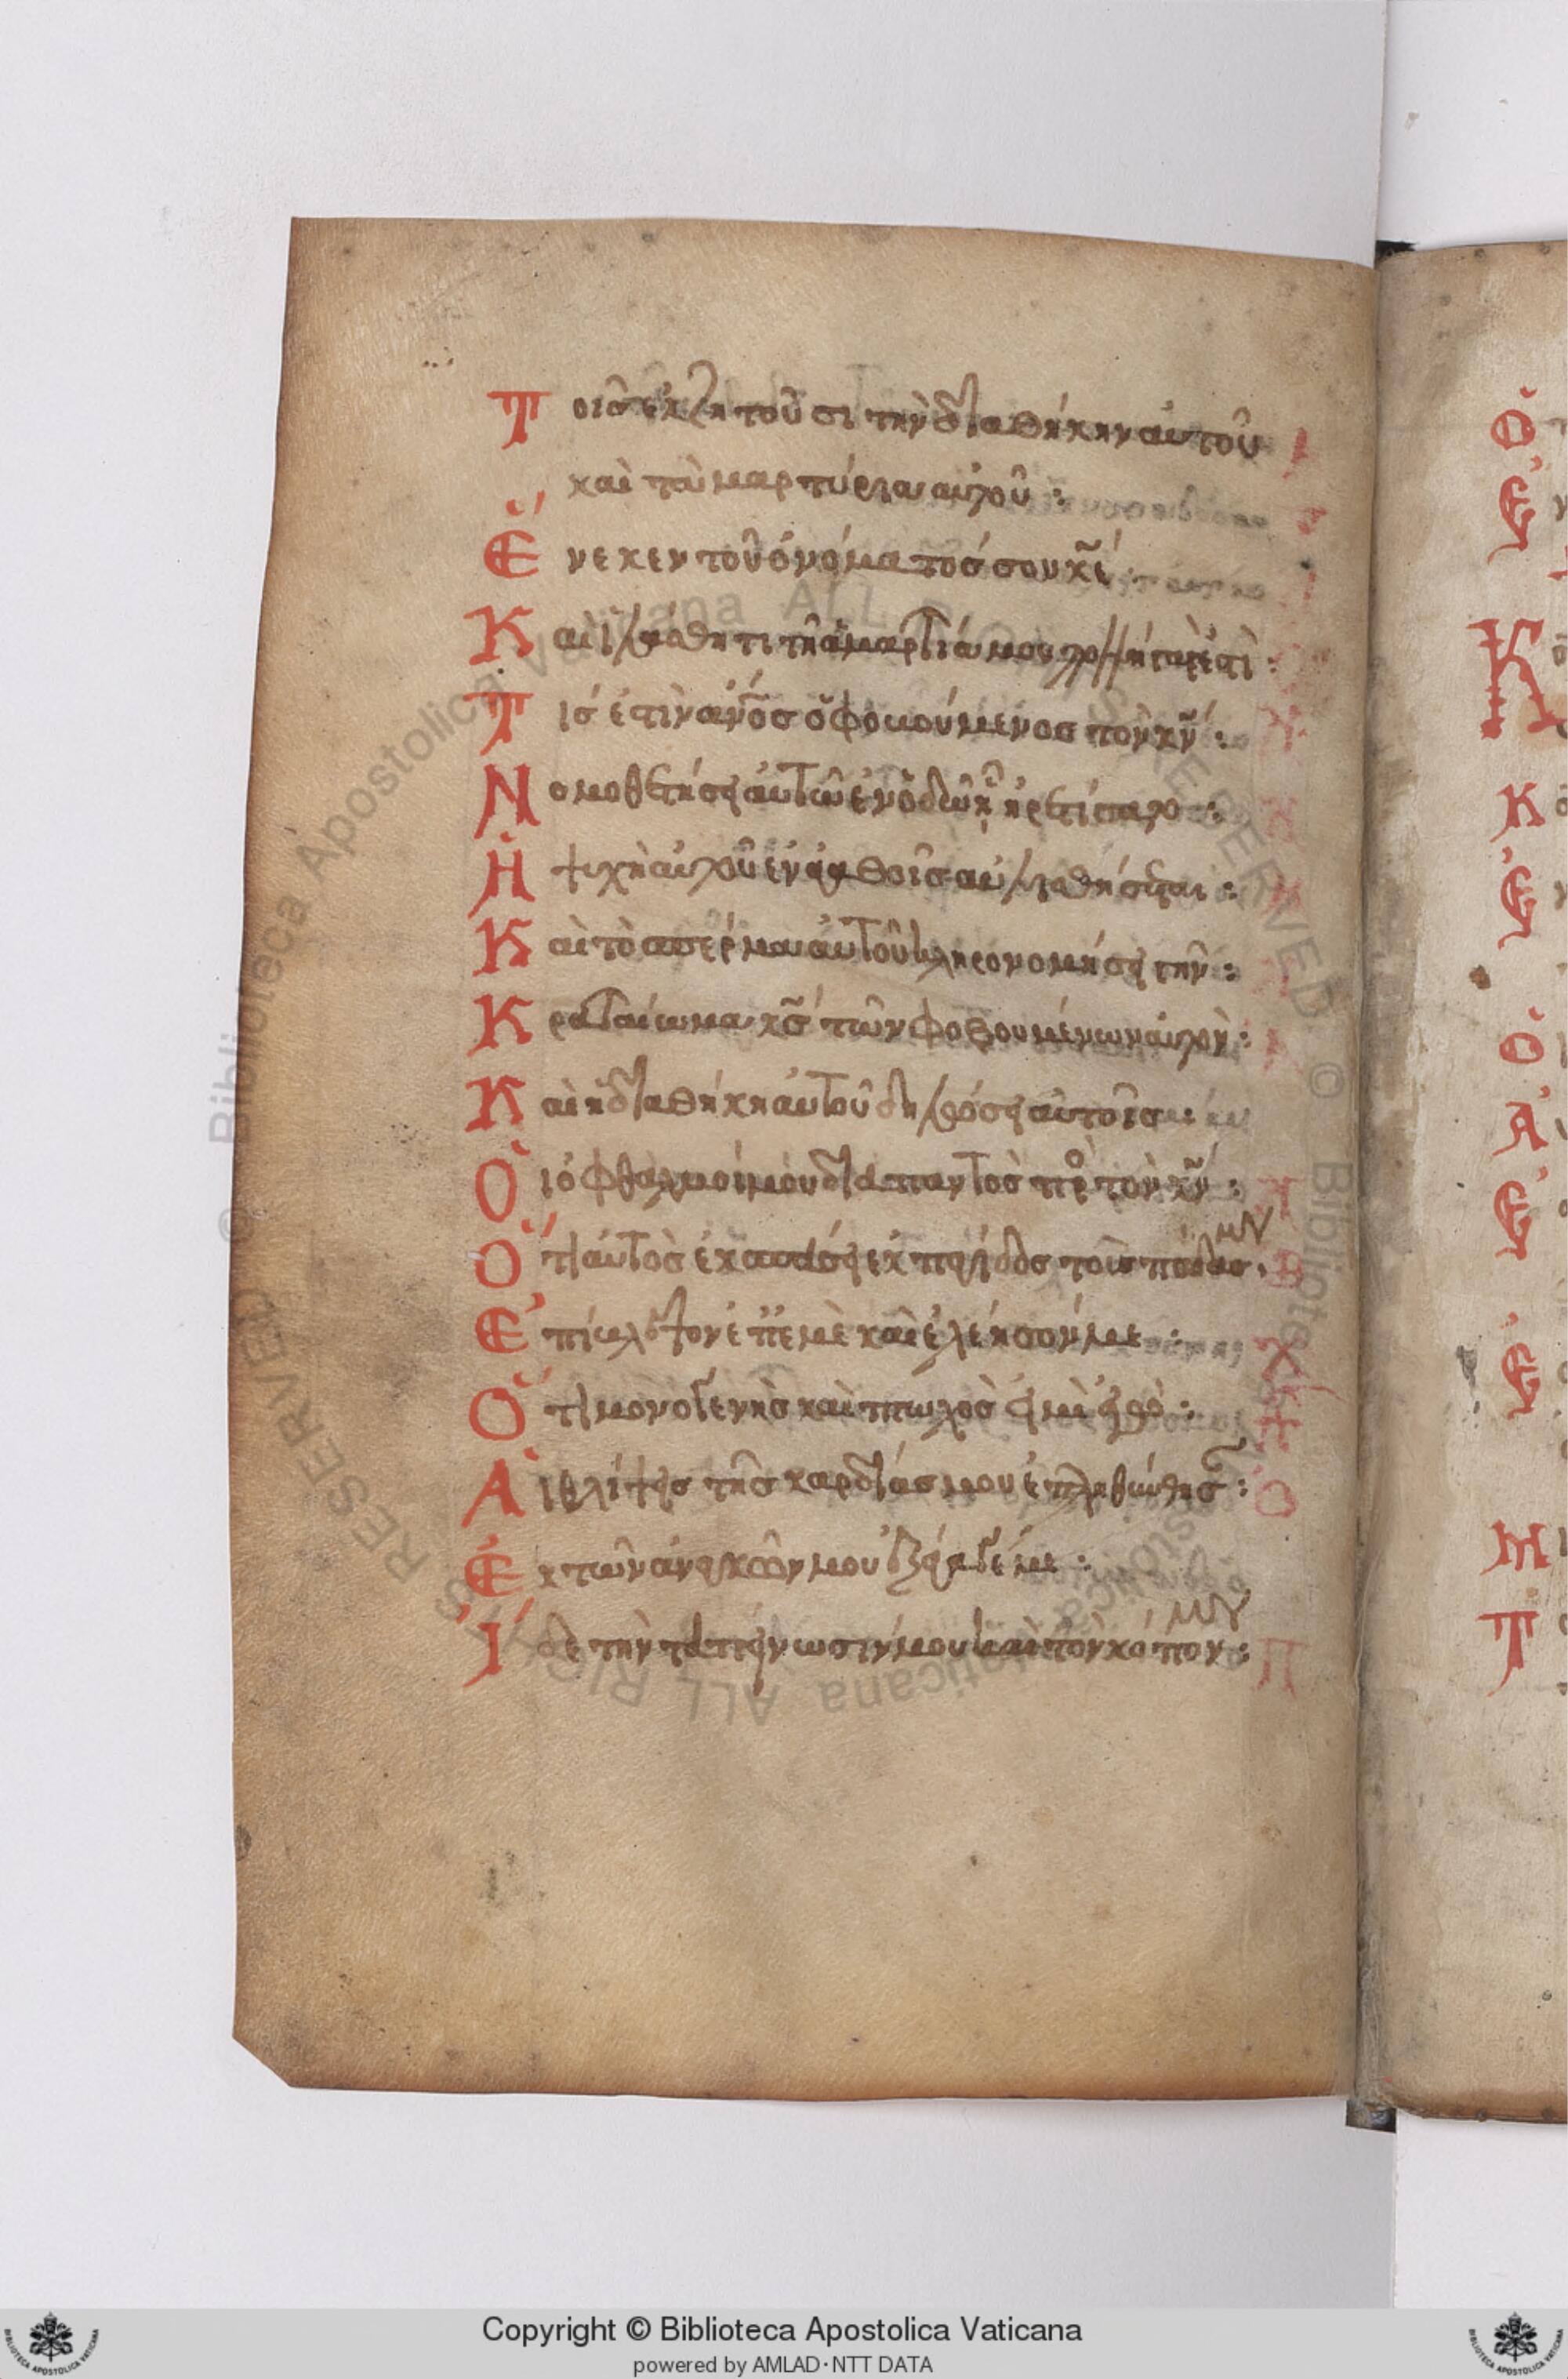 Τοῖς ἐκζητοῦσι τὴν διαθήκην αὐτοῦ
καὶ τὰ μαρτύρια αὐτοῦ :
Ἕνεκεν τοῦ ὀνόματός σου κε :
Και ἱλάσθητι τῆ ἁμαρτία μου πολλὴ
Τίς ἐστὶν ανος ὁ φοβούμενος τὸν κν :
Νομοθετήσει αὐτῶ ἐν ὁδῶ ἡ ἡρετίσατο :
Ἡ ψυχὴ αὐτοῦ ἐν ἀγαθοῖς αὐλισθήσεται :
Καὶ τὸ σπέρμα αὐτοῦ κληρονομήσει γῆν :
Κραταίωμα κς τῶν φοβουμένων αὐτὸν :
Καὶ ἡ διαθήκη αὐτοῦ δηλώσει αὐτοῖς
Ὁι ὀφθαλμοί μου διαπαντὸς πρ τὸν κν :
Ὅτι αὐτὸς ἐκσπάσει ἐκ παγίδος τοὺς πόδας μου
Ἐπίβλεψον ἐπ ἐμὲ καὶ ἐλέησόν με :
Ὅτι μονογενὴς καὶ πτωχὸς εἰμὶ ἐγὼ :
Αἱ θλίψεις τῆς καρδίας μου ἐπληθύνθησαν :
Ἐκ τῶν ἀναγκῶν μου ἐξάγαγέ με :
Ἴδε τὴν ταπείνωσίν μου καὶ τὸν κόπον μου :
Copyright © Biblioteca Apostolica Vaticana
powered by AMLAD･NTT DATA